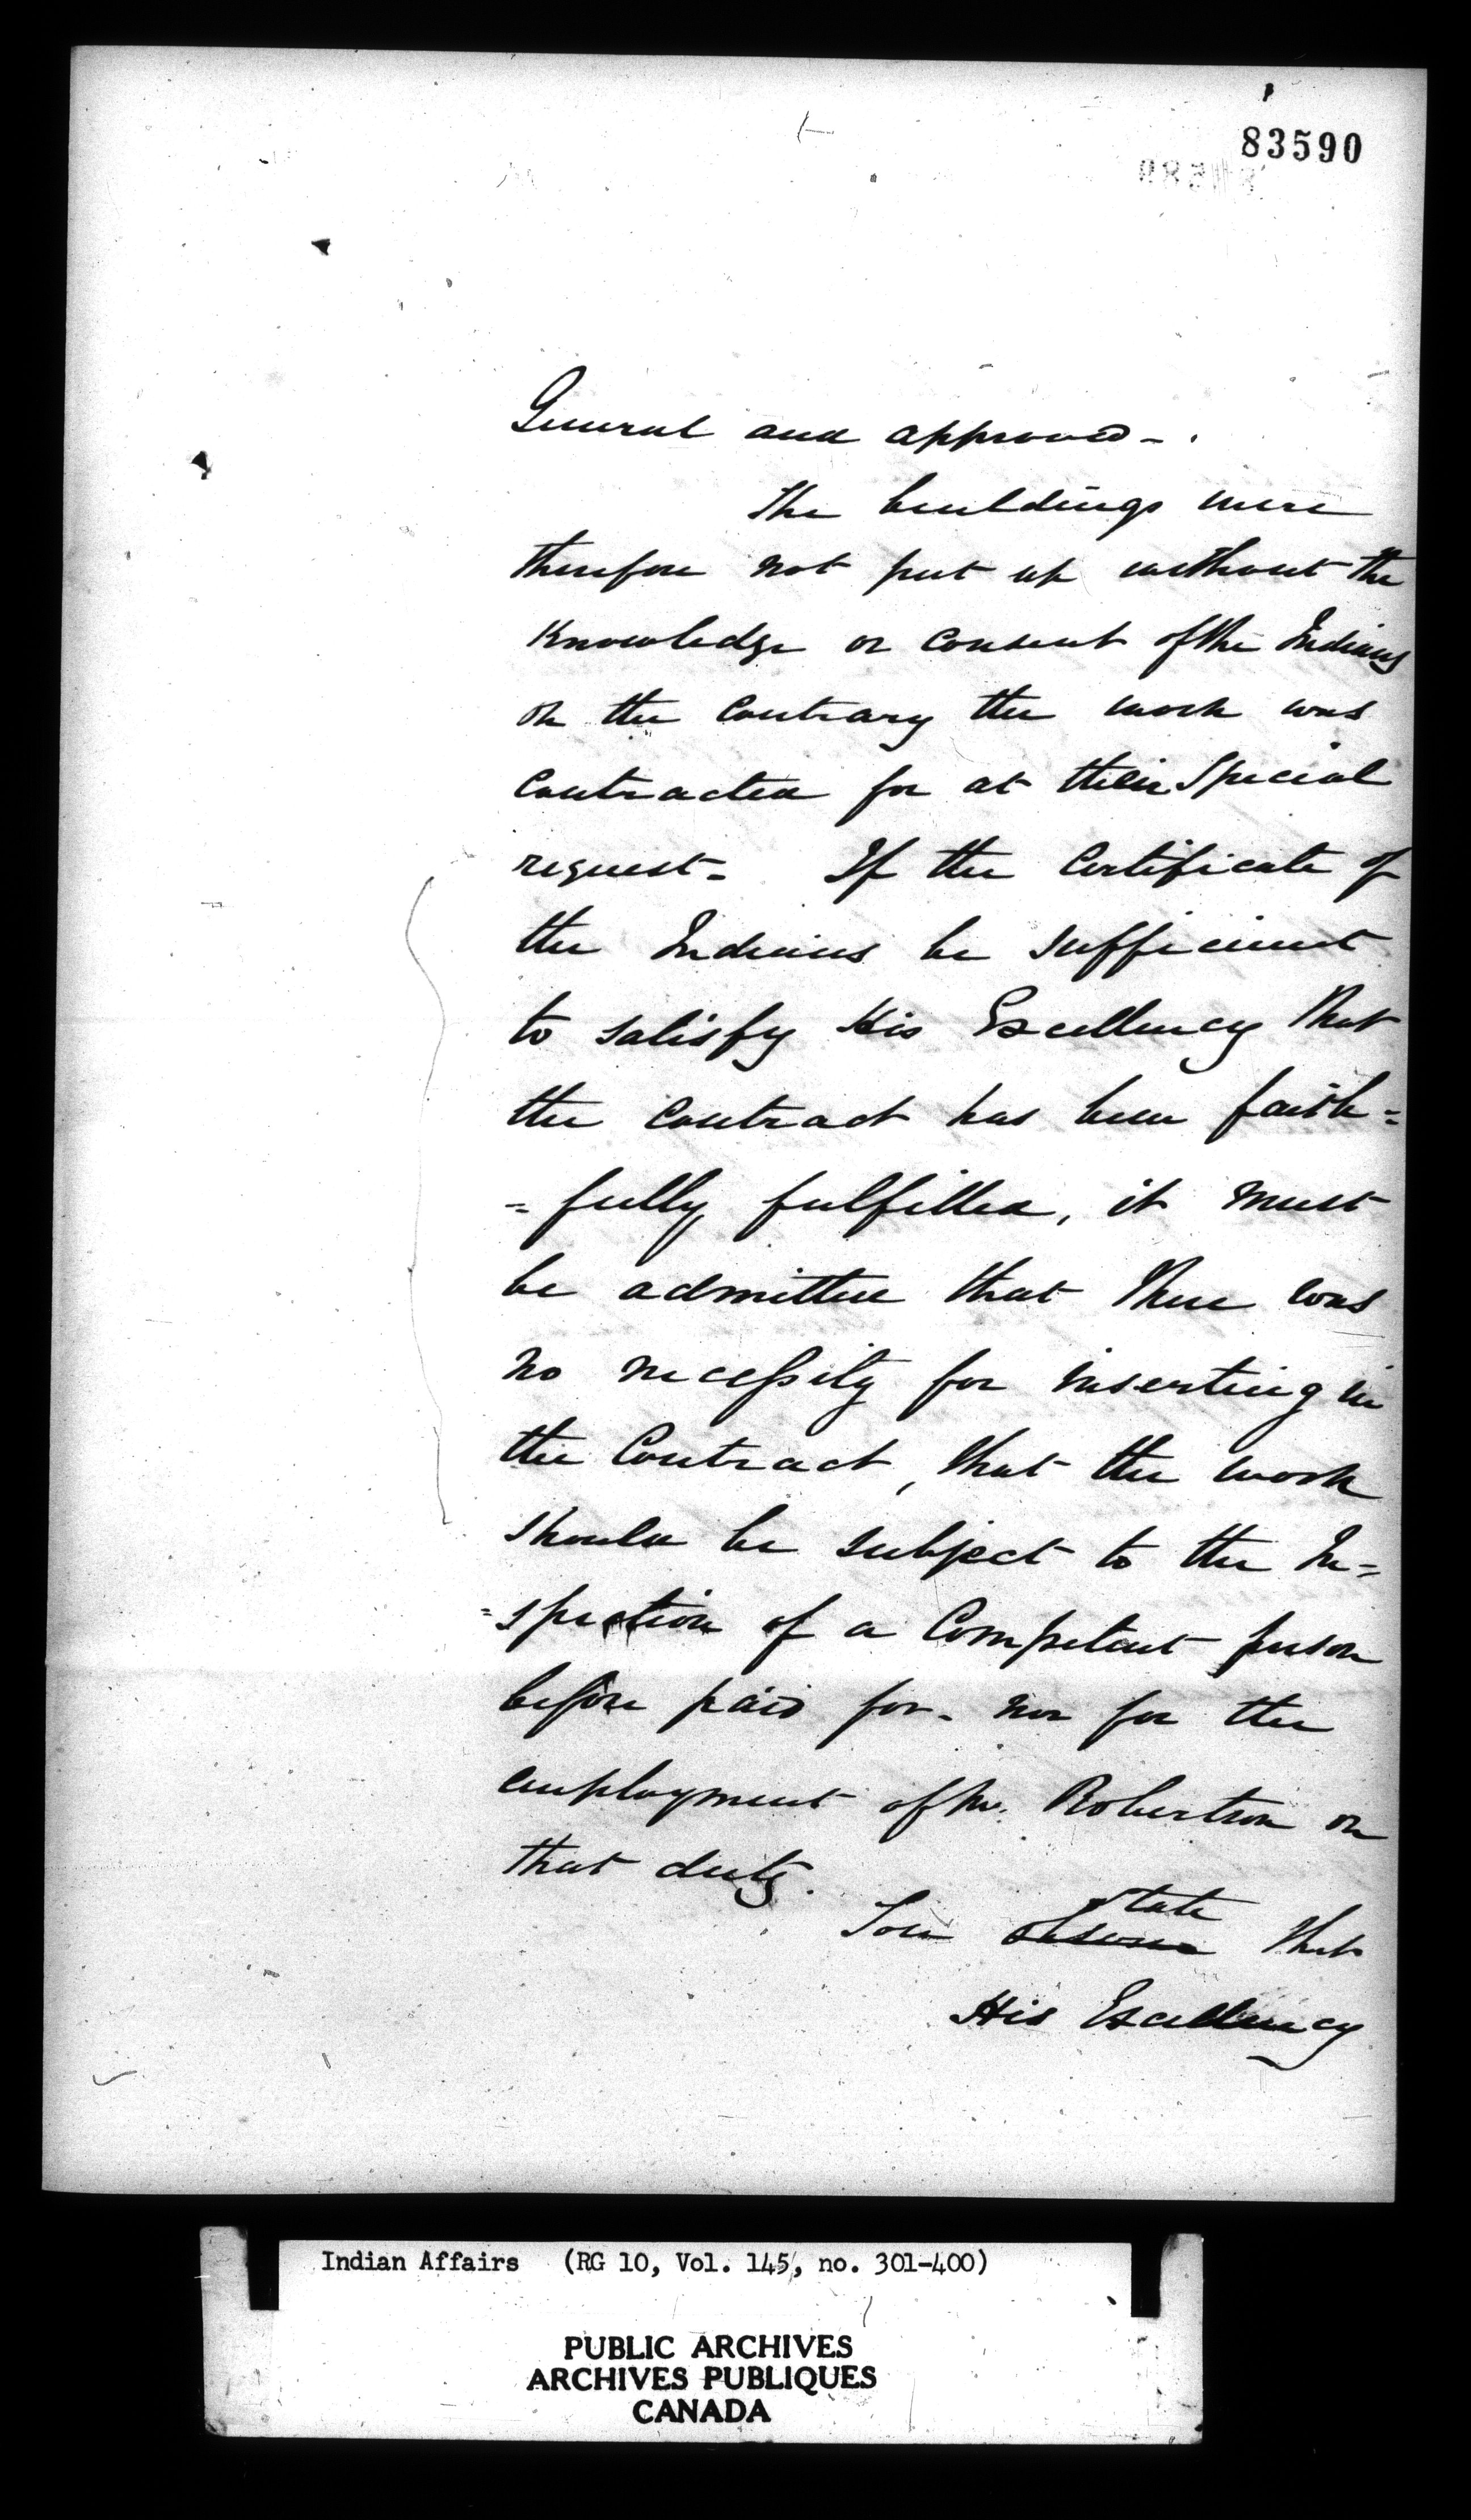 83590
General and approved - .
The buildings were
therefore not put up without the
Knowledge or Consent of the Indians
on the Contrary the work was
Contracted for at their Special
request - If the Certificate of
the Indians be sufficient
to satisfy His Excellency that
the Contract has been faith=
=fully fulfilled, it must
be admitted that there was
no necessity for inserting in
the Contract, that the work
should be subject to the In=
=spection of a Competent person
before paid for - nor for the
employment of Mr. Robertson on
that duty.
state
You observe that
His Excellency
Indian Affairs (RG 10, Vol. 145, no. 301-400)
PUBLIC ARCHIVES
ARCHIVES PUBLIQUES
CANADA